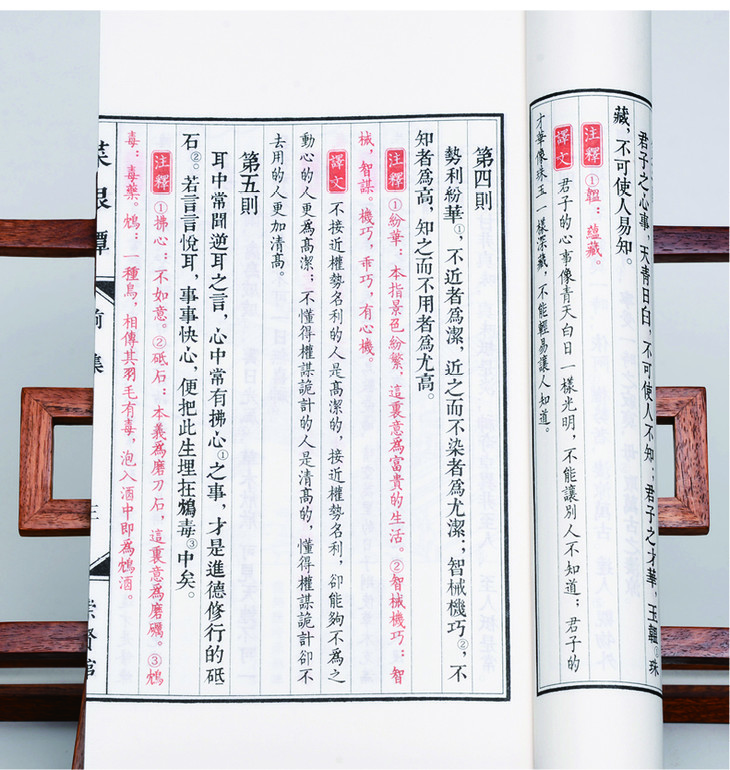 君子之心事，天青日白，不可使人不知；君子之才華，玉韞①珠
藏，不可使人易知。
注釋 ①韞：蘊藏。
譯文 君子的心事像青天白日一樣光明，不能讓別人不知道；君子的
才華像珠玉一樣深藏，不能輕易讓人知道。
第四則
勢利紛華①，不近者爲潔，近之而不染者爲尤潔；智械機巧②，不
知者爲高，知之而不用者爲尤高。
注釋 ①紛華：本指景色紛繁，這裏意爲富貴的生活。②智械機巧：智
械，智謀。機巧，乖巧，有心機。
譯文 不接近權勢名利的人是高潔的，接近權勢名利，卻能夠不爲之
動心的人更爲高潔；不懂得權謀詭計的人是清高的，懂得權謀詭計卻不
去用的人更加清高。
第五則
耳中常聞逆耳之言，心中常有拂心①之事，才是進德修行的砥
石②。若言言悅耳，事事快心，便把此生埋在鴆毒③中矣。
注釋 ①拂心：不如意。②砥石：本義爲磨刀石，這裏意爲磨礪。③鴆
毒：毒藥。鴆：一種鳥，相傳其羽毛有毒，泡入酒中即爲鴆酒。
菜根譚 前集 三 崇賢館